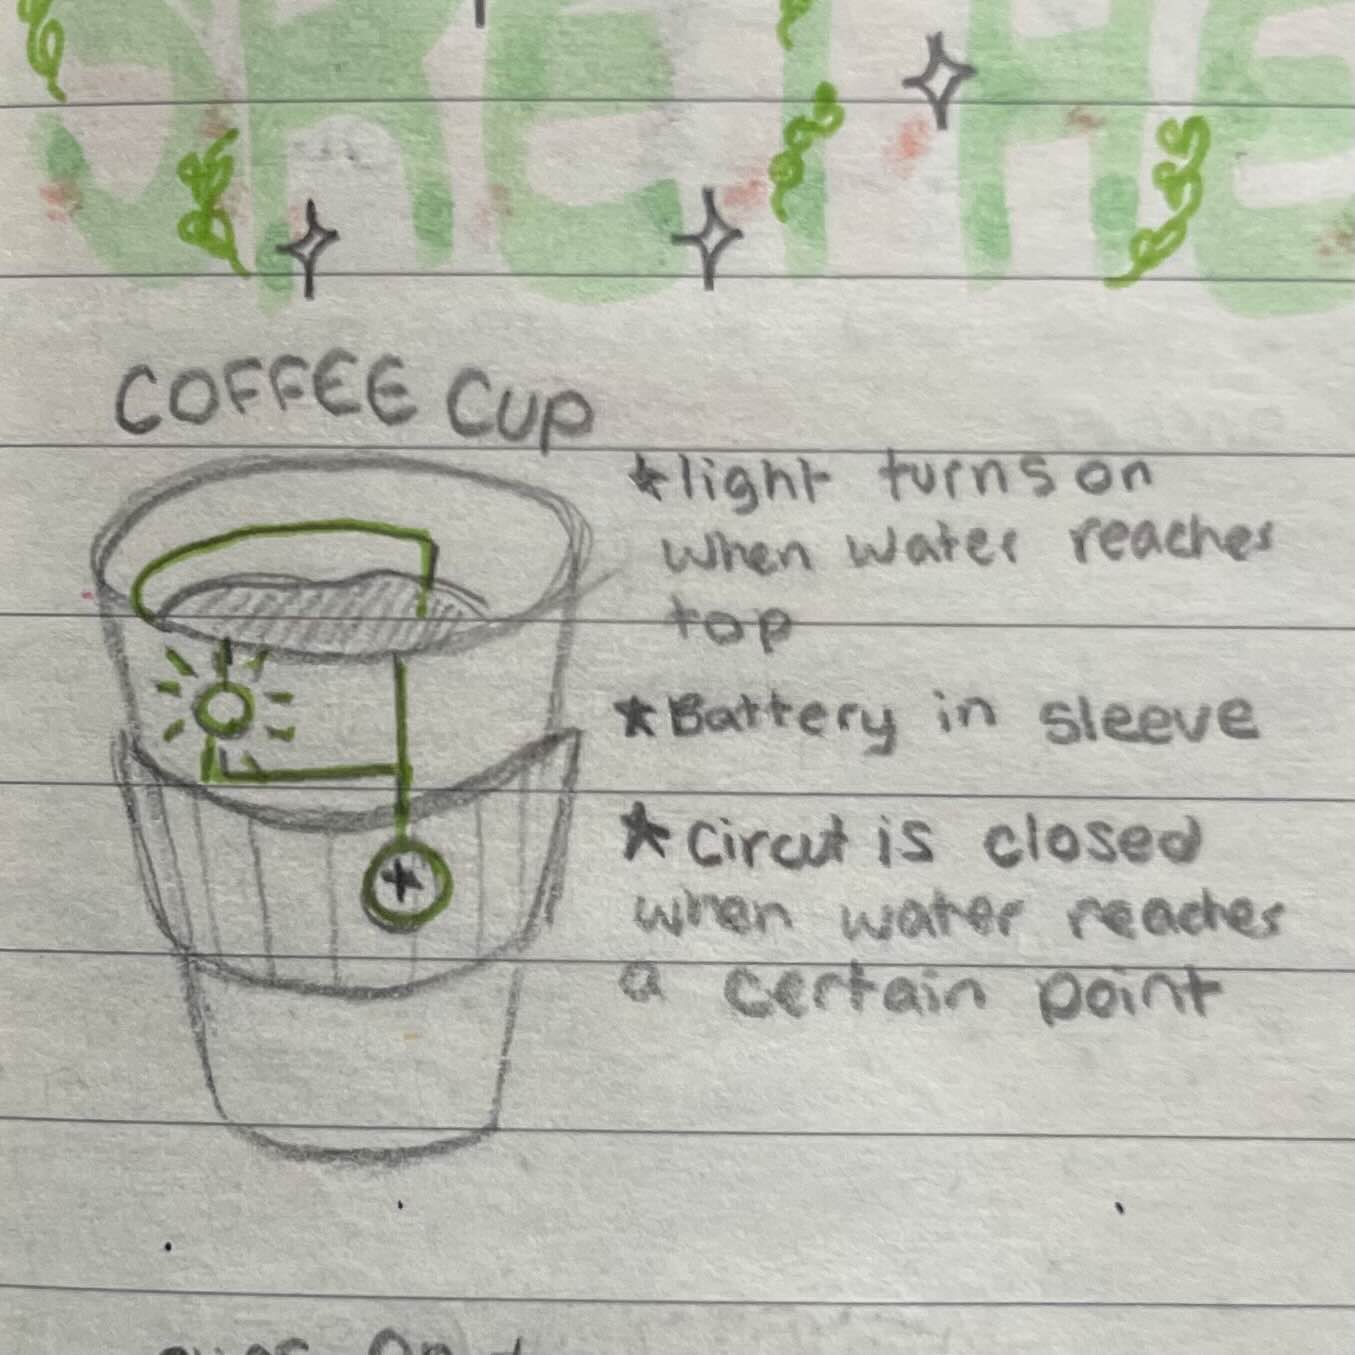 SKETCHE
COFFEE Cup
★light turns on
when water reaches
top
★Battery in sleeve
★Circut is closed
when water reaches
a certain point
+